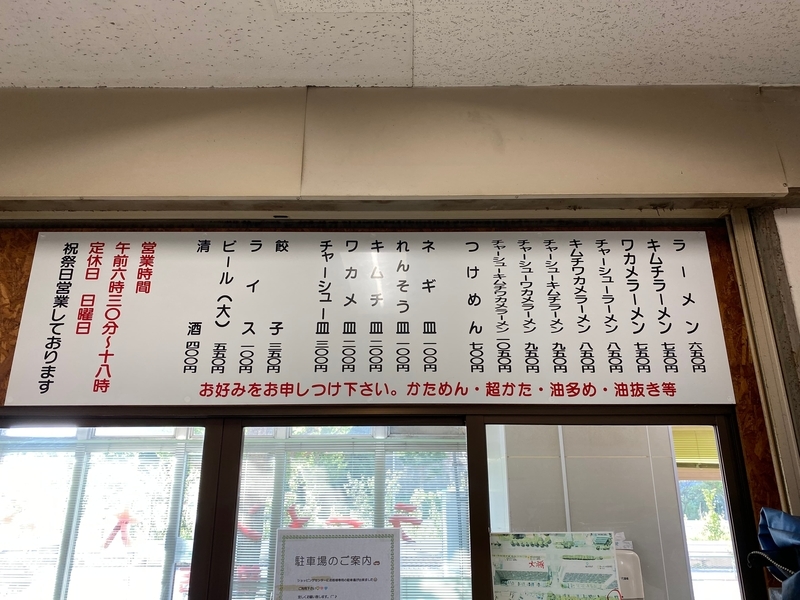 ラーメン 六五〇円
キムチラーメン 七五〇円
ワカメラーメン 七五〇円
チャーシューラーメン 八五〇円
キムチワカメラーメン 八五〇円
チャーシューキムチラーメン 九五〇円
チャーシューワカメラーメン 九五〇円
チャーシューキムチワカメラーメン 一〇五〇円
つけめん 七〇〇円
ネギ皿 一〇〇円
れんそう皿 一〇〇円
キムチ皿 二〇〇円
ワカメ皿 二〇〇円
チャーシュー皿 三〇〇円
餃子 三五〇円
ライス 一〇〇円
ビール(大) 五五〇円
清酒 四〇〇円
営業時間
午前六時三〇分〜十八時
定休日 日曜日
祝祭日営業しております
お好みをお申しつけ下さい。かためん・超かた・油多め・油抜き等
駐車場のご案内